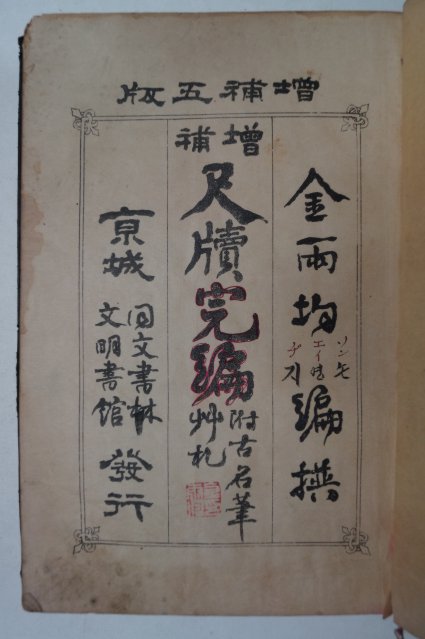 增補五版
金雨均
編撰
增補
尺牘完編
附古名筆
艸札
京城
同文書林
文明書館
發行